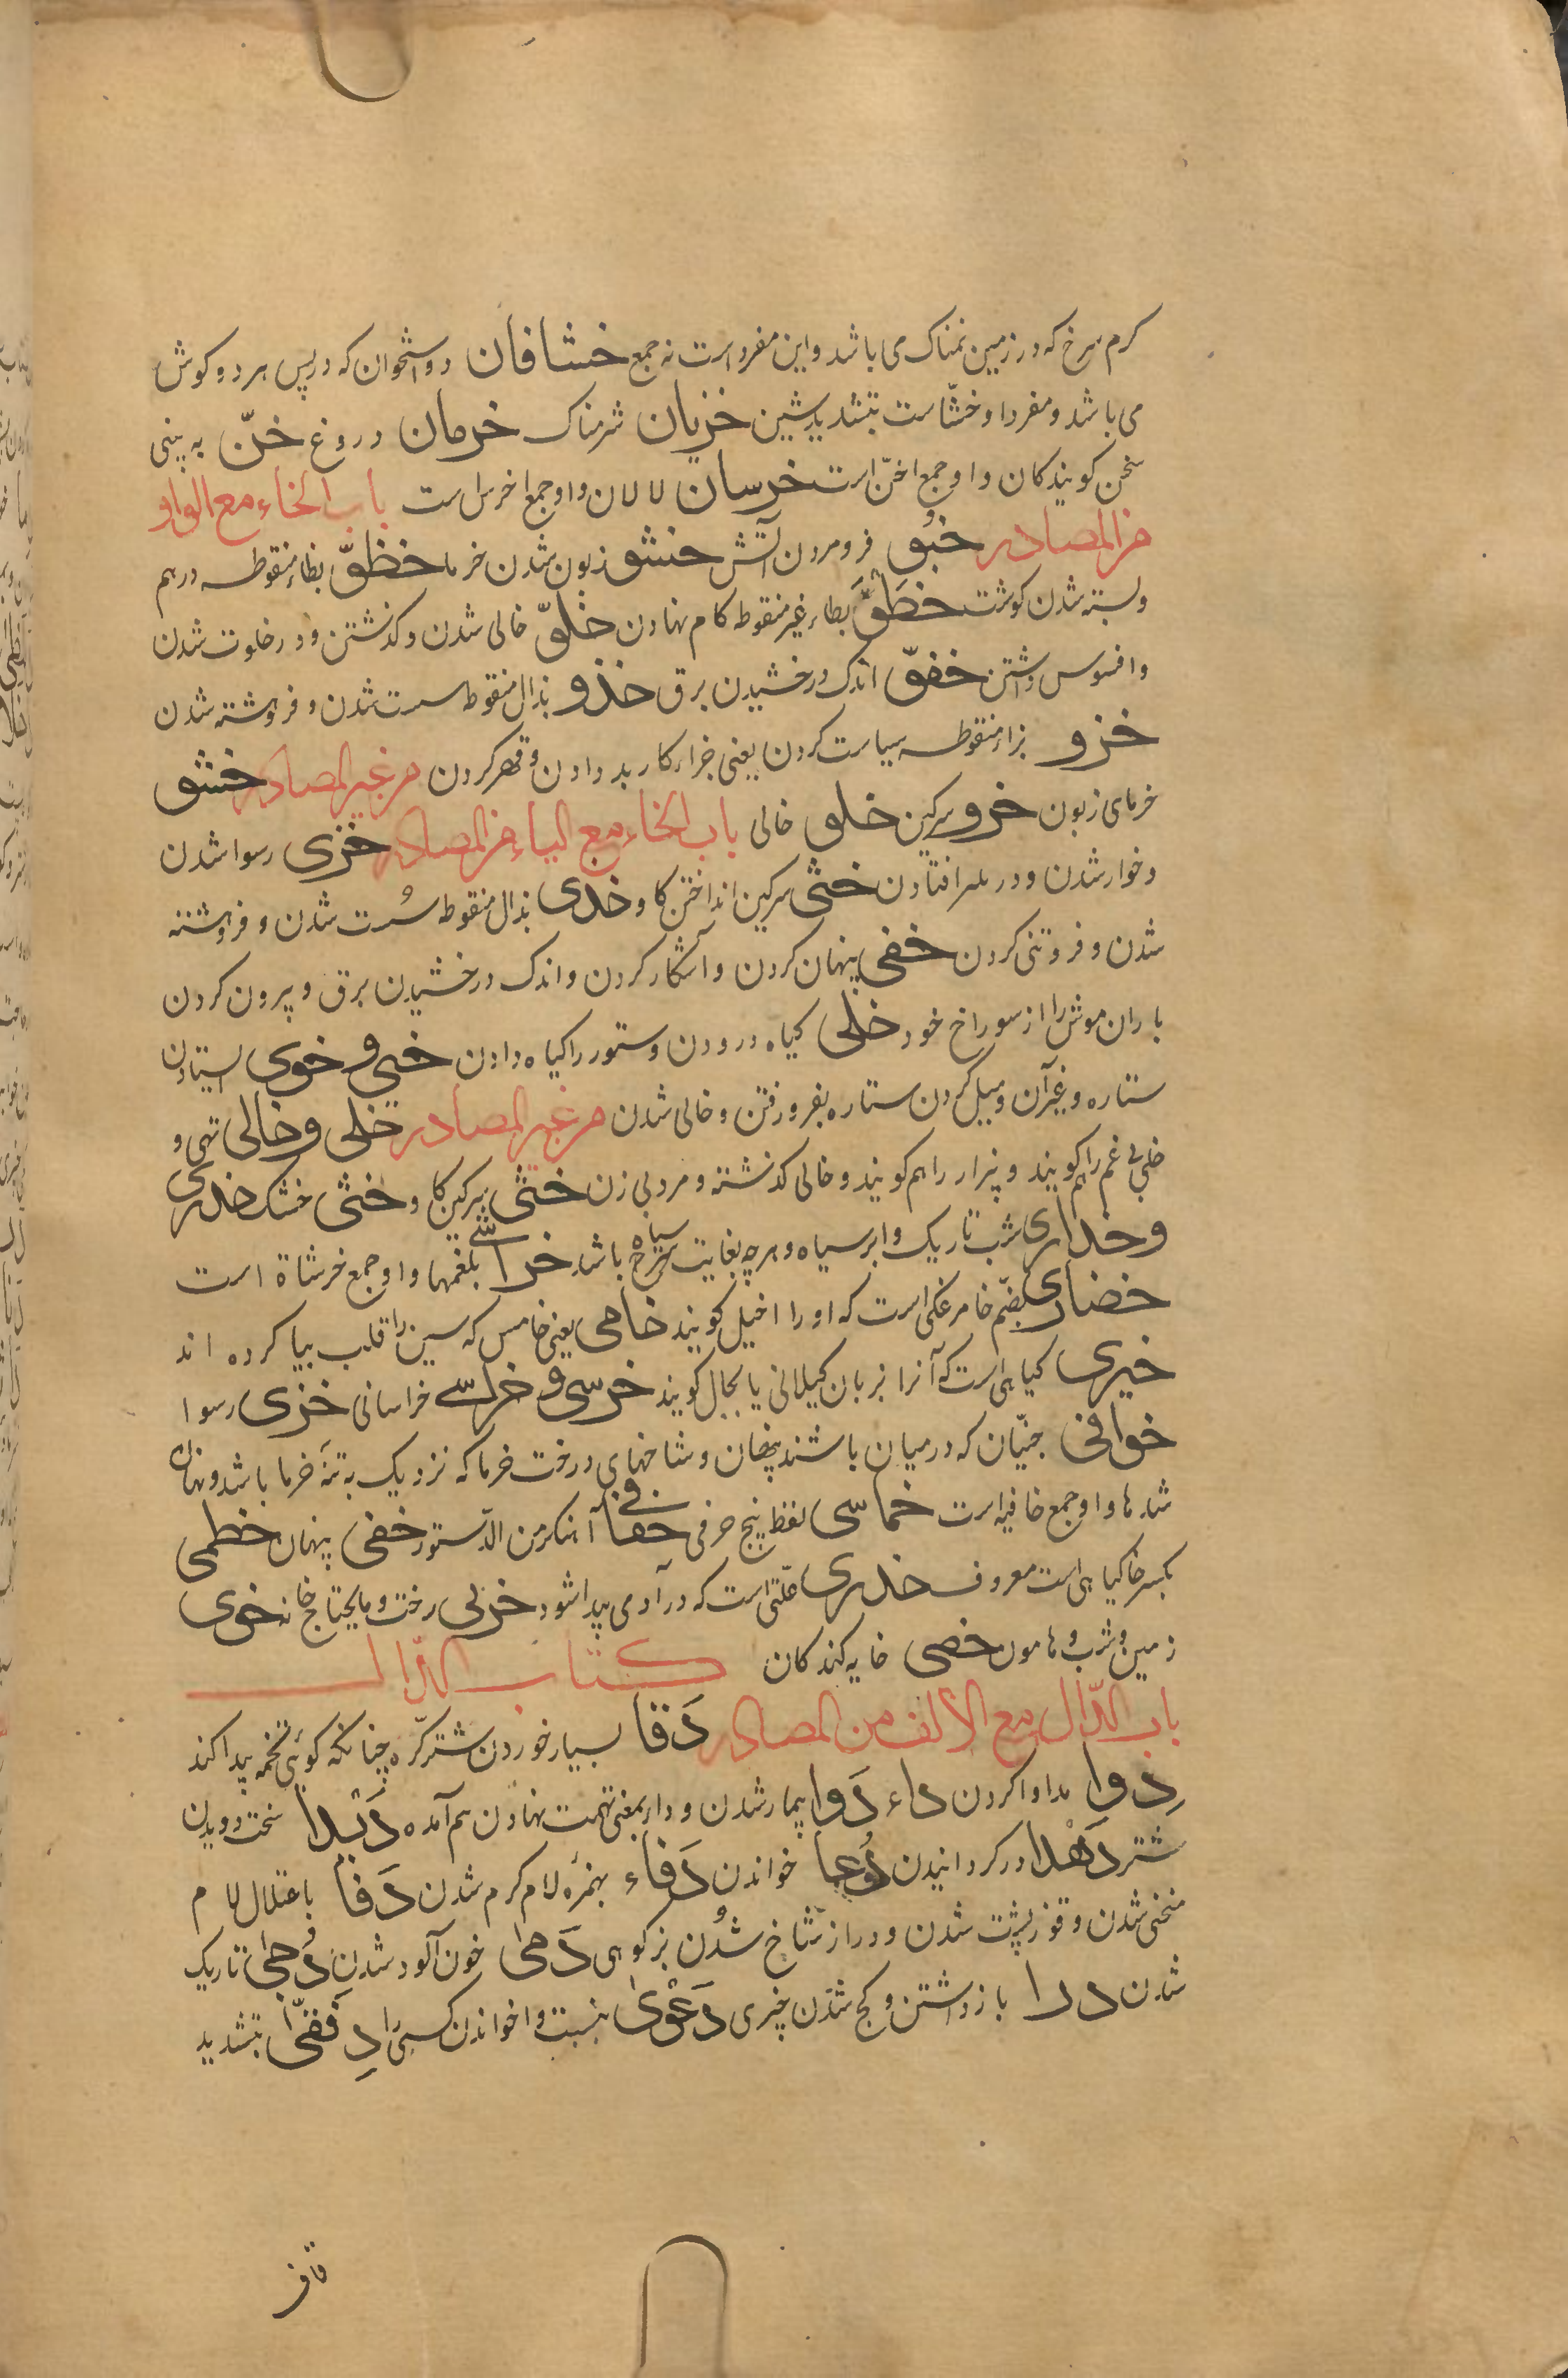 کرم سرخ که در زمین نمناک می باشد و این مفرد است نه جمع خشافان دو استخوان که در پس هر دو کوش
می باشد و مفرد او خشّا ست بتشدید شین خزیان شرمناک خرمان دروغ خنّ به بینی
سخن کویندکان و او جمع اخنّ است خرسان لالان و او جمع اخرس است باب الخاء مع الواو
من المصادر خبو فرو مردن آتش خشو زبون شدن خرما خظوّ بظاء منقوطه در هم
و بسته شدن کوشت خطو بطاء غیر منقوطه کام نهادن خلوّ خالی شدن و کذشتن و در خلوت شدن
و افسوس داشتن خفوّ اندک درخشیدن برق خذو بذال منقوطه سست شدن و فروهشته شدن
خزو بزاء منقوطه سیاست کردن یعنی جزاء کار بد دادن و قهر کردن من غیر المصادر خشو
خرمای زبون خرو سرکین خلو خالی باب الخاء مع الیاء من المصادر خزی رسوا شدن
و خوار شدن و در بلا افتادن خثی سرکین انداختن کاو خذی بذال منقوطه سست شدن و فروهشته
شدن و فروتنی کردن خفی پنهان کردن و آشکار کردن و اندک درخشیدن برق و بیرون کردن
باران موش را از سوراخ خود خلی کیاه درودن و ستور را کیاه دادن خیّ و خوی ایستادن
ستاره و غیر آن و میل کردن ستاره بفرو رفتن و خالی شدن من غیر المصادر خلی و خالی تهی و
خلی بی غم را کویند و بیزار را هم کویند و خالی کذشته و مرد بی زن خثی سرکین کاو خثی خشک خدری
و خداری شب تاریک و ابر سیاه و هرچه بغایت سیاه باشد خراشی بلغمها و او جمع خرشاة است
خضاری بضم خا مرغکی است که او را اخیل کویند خامی یعنی خامس که سین را قلب بیا کرده اند
خیری کیاهی است که آنرا بزبان کیلانی یا بجال کویند خرسی و خراسی خراسانی خزی رسوا
خوافی جنّیان که در میان باشند پنهان و شاخهای درخت خرما که نزدیک به تنه خرما باشد و نهان
شدها و او جمع خافیه است خماسی لفظ پنج حرفی خفافی آهنکر من الدّستور خفی پنهان خطمی
بکسر خا کیاهی است معروف خدری علّتی است که در آدمی پیدا شود خرثی رخت و مایحتاج خانه خوی
زمین و شب و هامون خصی خایه کندکان کتاب الدّال
باب الدّال مع الالف من المصادر دَقا بسیار خوردن شتر کرّه چنانکه کوئی تخمه پیدا کند
دِوا مداوا کردن داء دَوا بیمار شدن و داء بمعنی تهمت نهادن هم آمده دَئدا سخت دویدن
شتر دَهدا در کردانیدن دُعا خواندن دَفاء بهمزه لام کرم شدن دَفا باعتلال لام
منحنی شدن و قوز پشت شدن و دراز شاخ شدن بز کوهی دَمی خون آلود شدن دُجی تاریک
شدن درا باز داشتن و کج شدن چیزی دَعْوی بنسبت و اخواندن کسی را دِفقّی بتشدید
قاف